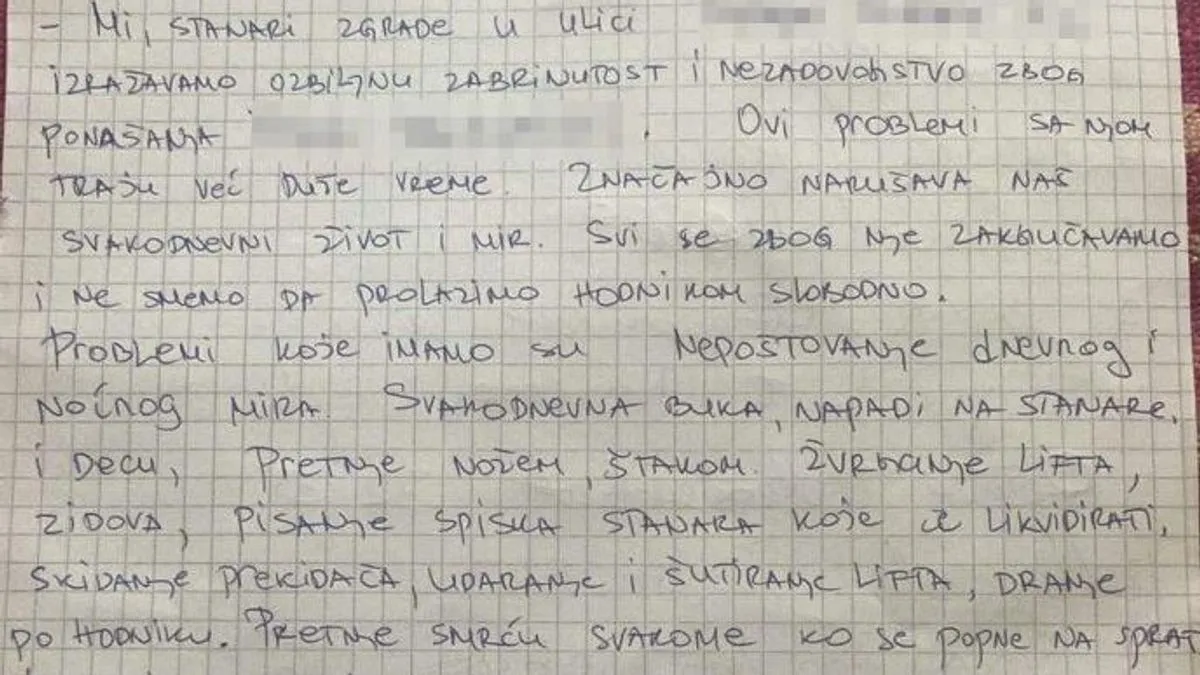 - Mi, STANARI ZGRADE U ULICI
IZRAŽAVAMO OZBILJNU ZABRINUTOST I NEZADOVOLJSTVO ZBOG
PONAŠANJA . OVI PROBLEMI SA NJOM
TRAJU VEĆ DUŽE VREME. ZNAČAJNO NARUŠAVA NAŠ
SVAKODNEVNI ŽIVOT I MIR. SVI SE ZBOG NJE ZAKLJUČAVAMO
I NE SMEMO DA PROLAZIMO HODNIKOM SLOBODNO.
PROBLEMI KOJE IMAMO SU NEPOŠTOVANJE dnevnog i
NOĆNOG MIRA. SVAKODNEVNA BUKA, NAPADI NA STANARE,
I DECU, PRETNJE NOŽEM, ŠTAKOM. ŽVRLJANJE LIFTA,
ZIDOVA, PISANJE SPISKA STANARA KOJE ĆE LIKVIDIRATI,
SKIDANJE PREKIDAČA, UDARANJE I ŠUTIRANJE LIFTA, DRANJE
PO HODNIKU. PRETNJE SMRĆU SVAKOME KO SE POPNE NA SPRAT